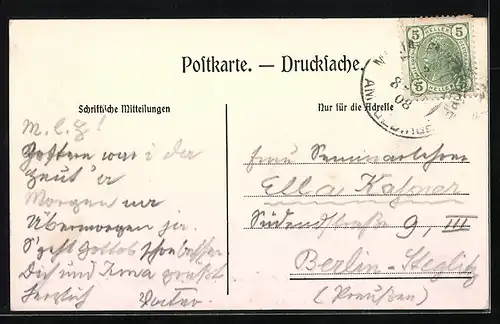 Postkarte. — Drucksache.
Schriftliche Mitteilungen
Nur für die Adresse
5 HELLER 5
5
8
08
M. l. E!
Gestern war i da
Heut' er
Morgen wir
Übermorgen ja.
S'geht Gottlob schon besser
Dich und Irma grüßt
herzlich
Frau Seminarlehrer
Ella
Südendstraße 9, III
Berlin-Steglitz
(Preußen)